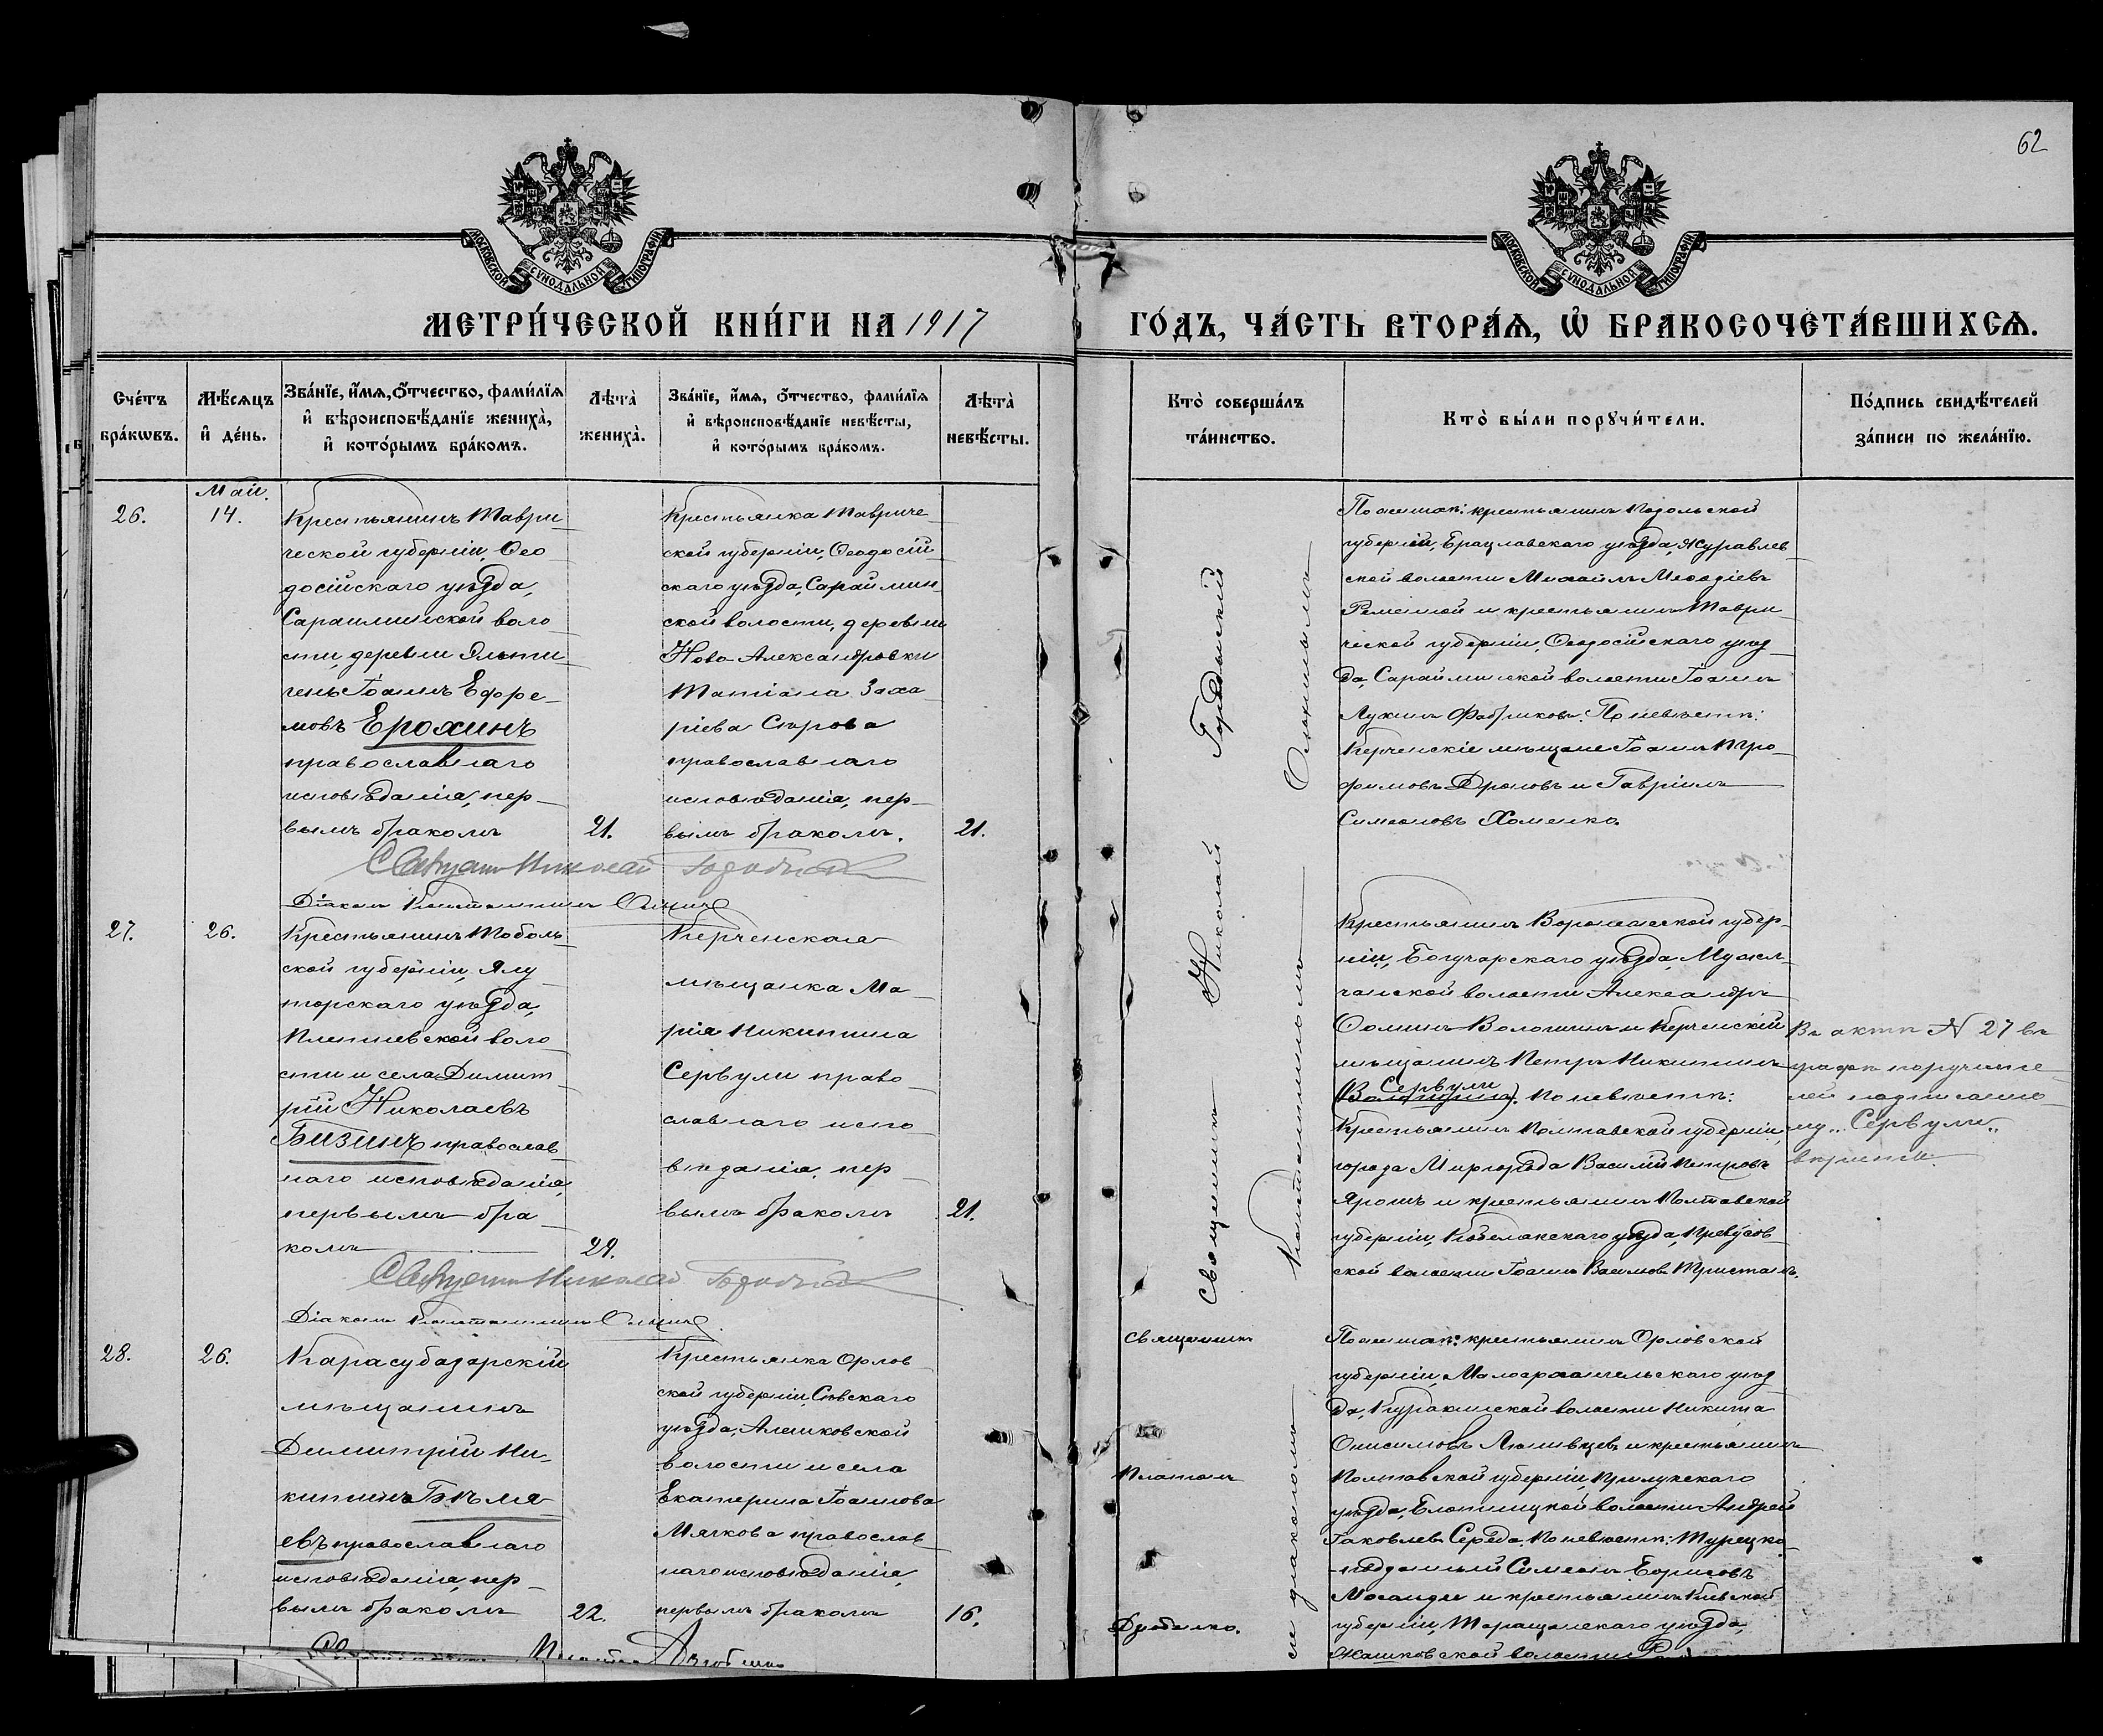 62
МОСКОВСКОЙ СѴНОДАЛЬНОЙ ТИПОГРАФІИ
МОСКОВСКОЙ СѴНОДАЛЬНОЙ ТИПОГРАФІИ
МЕТРИ́ЧЕСКОЙ КНИ́ГИ НА 1917
ГО́ДЪ, ЧА́СТЬ ВТОРА́Ѧ, Ѽ БРАКОСОЧЕТА́ВШИХСѦ.
Сче́тъ
бра́кѡвъ.
Мѣ́сѧцъ
и҆ де́нь.
Зва́нїе, и҆́мѧ, ѻ҆́тчество, фами́лїѧ
и҆ вѣроисповѣ́данїе жениха̀,
и҆ кото́рымъ бра́комъ.
Лѣ́та̀
жениха̀.
Зва́нїе, и҆́мѧ, ѻ҆́тчество, фами́лїѧ
и҆ вѣроисповѣ́данїе невѣ́сты,
и҆ кото́рымъ бра́комъ.
Лѣ́та̀
невѣ́сты.
Кто̀ соверша́лъ
та́инство.
Кто̀ бы́ли порꙋчи́тели.
По́дпись свидѣ́телей
за́писи по жела́нїю.
26.
Май.
14.
Крестьянинъ Таври
ческой губерніи, Ѳео
досійскаго уѣзда,
Сарайминской воло
сти деревни Эльти
гень Іоаннъ Ефре-
мовъ Ерохинъ
православнаго
исповѣданія, пер-
вымъ бракомъ
21.
Крестьянка Тавриче-
ской губерніи, Ѳеодосій
скаго уѣзда, Сараймин
ской волости, деревни
Ново-Александровки
Татіана Заха
ріева Сырова
православнаго
исповѣданія, пер-
вымъ бракомъ.
21.
Поженихѣ: крестьянинъ Подольской
губерніи, Брацлавскаго уѣзда, Журавлев
ской волости Михаилъ Меѳодіевъ
и крестьянинъ Таври
ческой губерніи, Ѳеодосійскаго уѣз
да, Сарайминской волости Іоаннъ
Лукинъ Фабриковъ. По невѣстѣ:
Керченскіе мѣщане Іоаннъ Тро-
фимовъ Дроновъ и Гавріилъ
Симеоновъ Хоменко.
Священникъ Николай
Діаконъ Константинъ
27.
26.
Крестьянинъ Тоболь
ской губерніи, Ялу
торскаго уѣзда,
воло
сти и села Димит
рій Николаевъ
Бизинъ православ
наго исповѣданія,
первымъ бра
комъ
29.
Керченская
мѣщанка Ма-
рія Никитина
Сервули право-
славнаго испо
вѣданія, пер-
вымъ бракомъ
21.
Крестьянинъ Воронежской губер
ніи, Богучарскаго уѣзда,
волости Александръ
Ѳоминъ Волошинъ и Керченскій
мѣщанинъ Петръ Никитинъ
Сервули
(Волошинъ). По невѣстѣ:
Крестьянинъ Полтавской губерніи,
города Миргорода Василій Петровъ
Ярошъ и крестьянинъ Полтавской
губерніи, Кобелякскаго уѣзда,
ской волости Іоаннъ
Въ актѣ N 27 въ
графѣ поручите
лей надписанно
му „Сервули„
вѣрить.
Священникъ Николай
Діаконъ Константинъ
Священникъ Николай
Константиномъ
28.
26.
Карасубазарскій
мѣщанинъ
Димитрій Ни-
китинъ Бѣля
евъ православнаго
исповѣданія, пер-
вымъ бракомъ
22.
Крестьянка Орлов
ской губерніи, Сѣвскаго
уѣзда, Алешковской
волости и села
Екатерина Іоаннова
Мячкова православ
наго исповѣданія,
первымъ бракомъ
16.
Священникъ
Платонъ
съ діакономъ
Поженихѣ: крестьянинъ Орловской
губерніи, Малоархангельскаго уѣз
да, Куракинской волости Никита
Онисимовъ и крестьянинъ
Полтавской губерніи, Прилукскаго
уѣзда, волости Андрей
Іаковлевъ Середа. По невѣстѣ: Турецко-
-подданный Симеонъ Борисовъ
и крестьянинъ Кіевской
губерніи, Таращанскаго уѣзда,
Жашковской волости